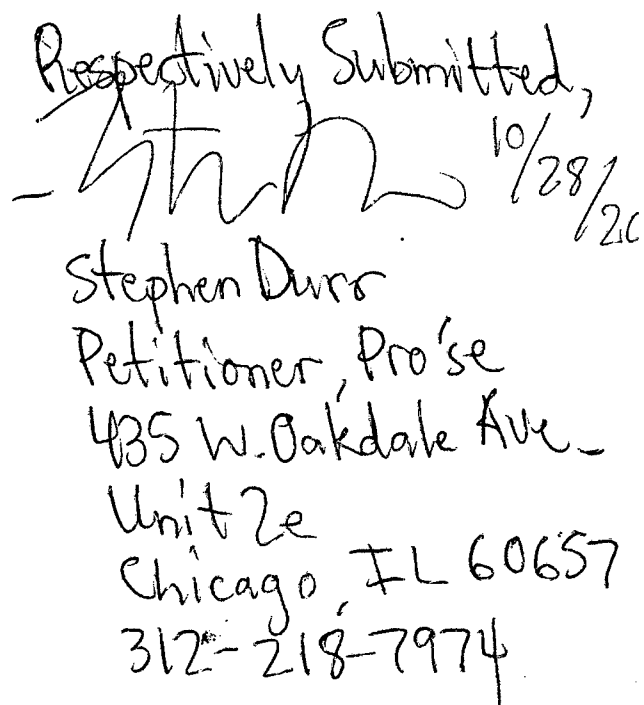 Respectively Submitted,
10/28/20
Stephen Durr
Petitioner, Pro'se
435 W. Oakdale Ave.
Unit 2e
Chicago, IL 60657
312-218-7974